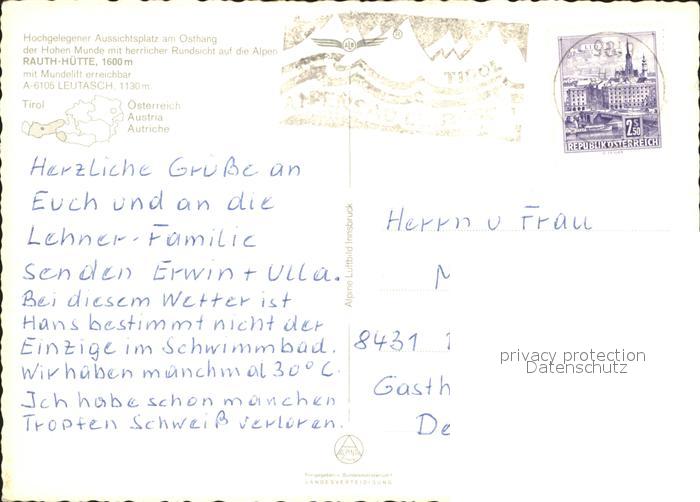 Hochgelegener Aussichtsplatz am Osthang
der Hohen Munde mit herrlicher Rundsicht auf die Alpen
RAUTH-HÜTTE, 1600 m
mit Mundelift erreichbar
A-6105 LEUTASCH, 1130 m.
Tirol
Österreich
Austria
Autriche
TIROL
2S50
REPUBLIK ÖSTERREICH
Herzliche Grüße an
Euch und an die
Lehner-Familie
senden Erwin + Ulla.
Bei diesem Wetter ist
Hans bestimmt nicht der
Einzige im Schwimmbad.
Wir haben manchmal 30° C.
Ich habe schon manchen
Tropfen Schweiß verloren.
Alpine Luftbild Innsbruck
Herrn u Frau
8431
Gasth
De
privacy protection
Datenschutz
Freigegeben v. Bundesministerium f.
LANDESVERTEIDIGUNG